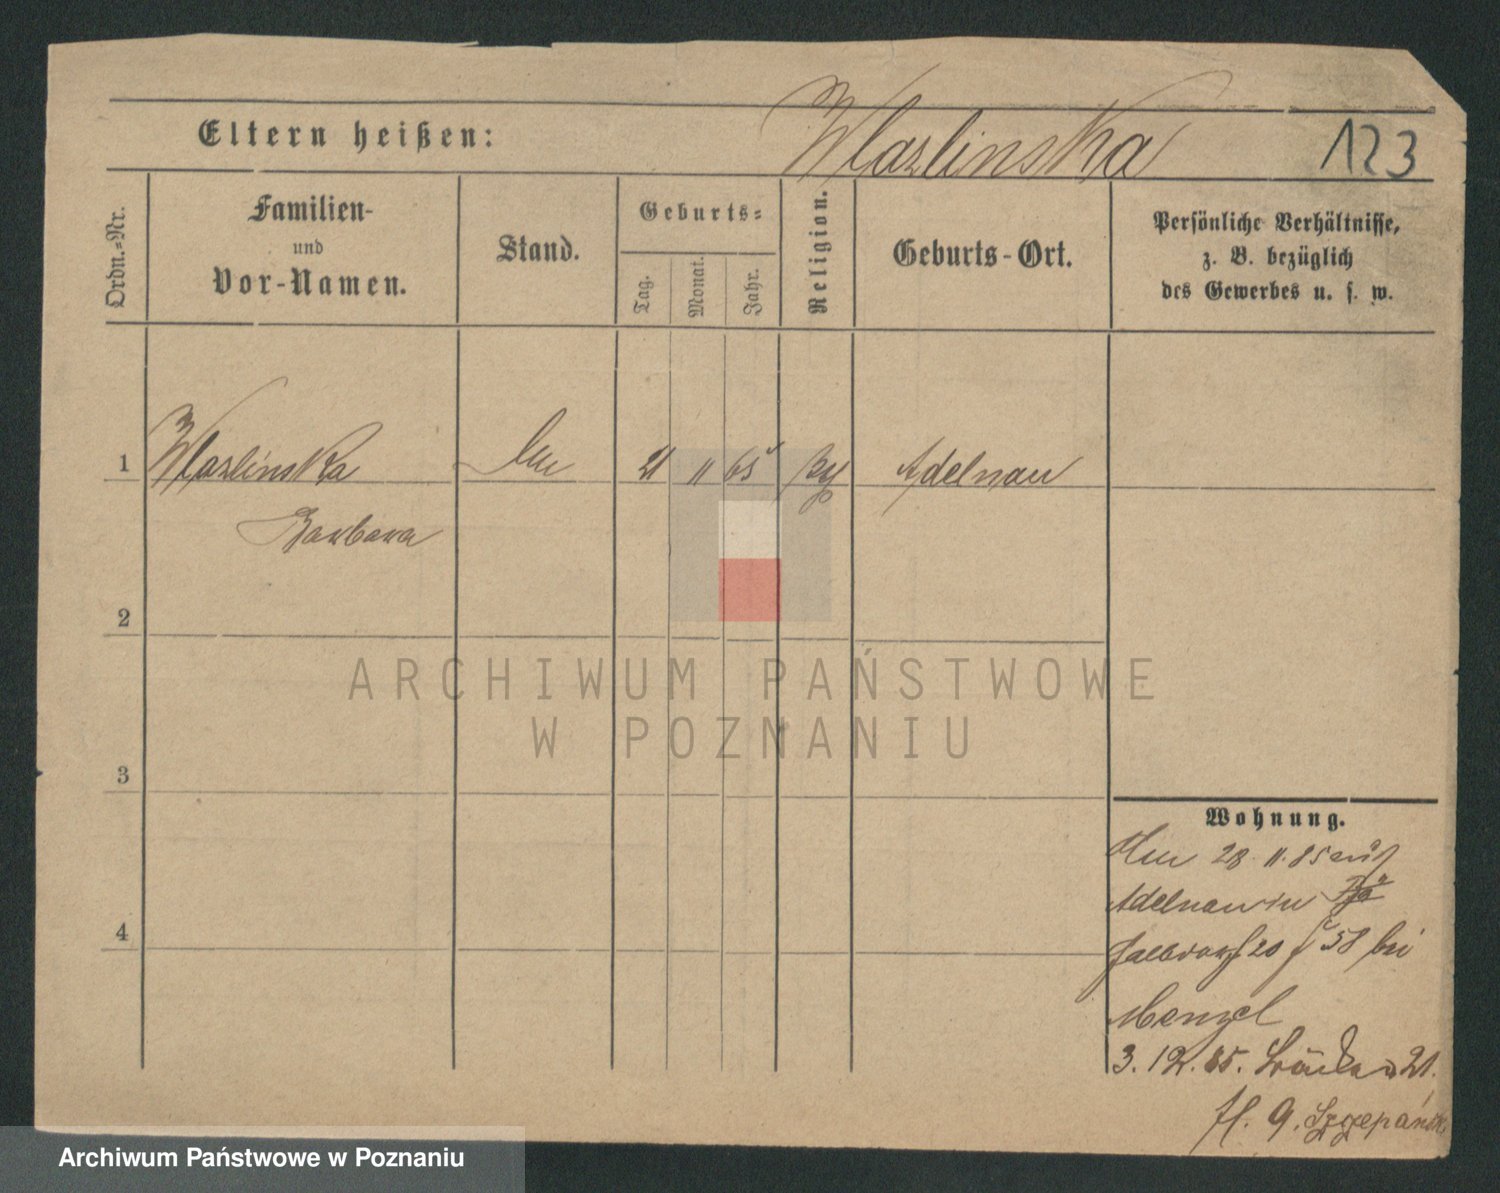 Wlazlinska 123
Eltern heißen:
Ordn.-Nr.
Familien-
und
Vor-Namen.
Stand.
Geburts-
Tag.
Monat.
Jahr.
Religion.
Geburts-Ort.
Persönliche Verhältnisse,
z. B. bezüglich
des Gewerbes u. s. w.
1 Wlazlinska 21 11 65 Adelnau
Barbara
2
3
4
Wohnung.
28. 11. 85 aus
Adelnau in
20 58 bei
Menzel
3. 12. 85. 21.
H. 9.
ARCHIWUM PAŃSTWOWE
W POZNANIU
Archiwum Państwowe w Poznaniu